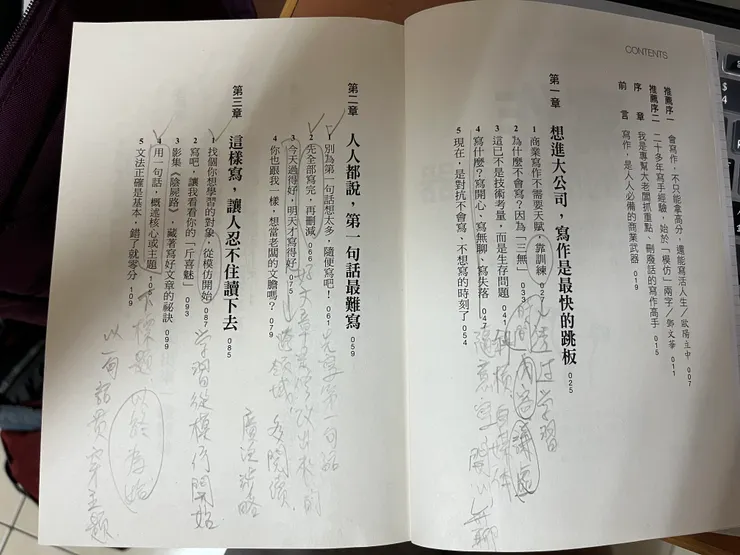 CONTENTS
推薦序一 會寫作，不只能拿高分，還能寫活人生／歐陽立中 007
推薦序二 二十多年寫手經驗，始於「模仿」兩字／鄧文華 011
序 章 我是專幫大老闆抓重點、刪廢話的寫作高手 015
前 言 寫作，是人人必備的商業武器 019
第一章 想進大公司，寫作是最快的跳板 025
1 商業寫作不需要天賦，靠訓練 027
2 為什麼不會寫？因為「三無」 033
3 這已不是技術考量，而是生存問題 041
4 寫什麼？寫開心、寫無聊、寫失落 047
5 現在，是對抗不會寫、不想寫的時刻了 054
透過學習
時間 內容
第二章 人人都說，第一句話最難寫 059
1 別為第一句話想太多，隨便寫吧！ 061
2 先全部寫完，再刪減 066
3 今天過得好，明天才寫得好 075
4 你也跟我一樣，想當老闆的文膽嗎？ 079
第一句話
好文章是修改出來的
領域 多閱讀
廣泛涉略
第三章 這樣寫，讓人忍不住讀下去 085
1 找個你想學習的對象，從模仿開始 087
2 寫吧，讓我看看你的「斤喜魅」 093
3 影集《陰屍路》，藏著寫好文章的祕訣 099
4 用一句話，概述核心或主題 106
5 文法正確是基本，錯了就零分 109
學習從模仿開始
下標題
以終為始
以一句話貫穿主題